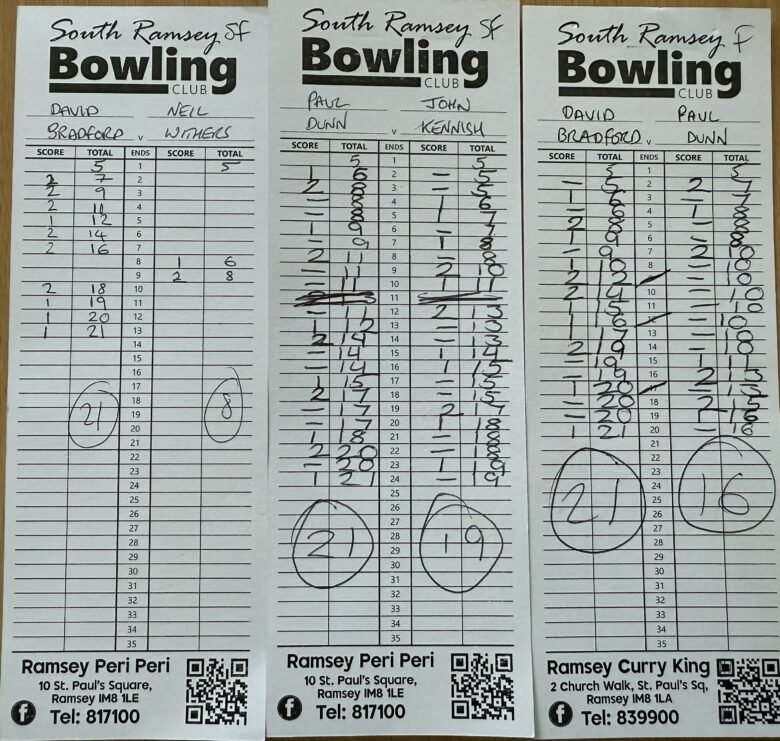 South Ramsey SF
Bowling
CLUB
DAVID NEIL
BRADFORD v WITHERS
SCORE TOTAL ENDS SCORE TOTAL
5 1 5
2 7 2
2 9 3
2 11 4
1 12 5
2 14 6
2 16 7
8 1 6
9 2 8
2 18 10
1 19 11
1 20 12
1 21 13
14
15
16
17
18
21 19 8
20
21
22
23
24
25
26
27
28
29
30
31
32
33
34
35
Ramsey Peri Peri
10 St. Paul's Square,
Ramsey IM8 1LE
Tel: 817100
South Ramsey SF
Bowling
CLUB
PAUL JOHN
DUNN v KENNISH
SCORE TOTAL ENDS SCORE TOTAL
5 1 5
1 6 2 – 5
2 8 3 – 5
– 8 4 1 6
– 8 5 1 7
1 9 6 – 7
– 9 7 1 8
2 11 8 – 8
– 11 9 2 10
– 11 10 1 11
11
– 11 12 2 13
1 12 13 – 13
2 14 14 – 13
– 14 15 1 14
– 14 16 1 15
1 15 17 – 15
2 17 18 – 15
– 17 19 2 17
– 17 20 1 18
1 18 21 – 18
2 20 22 – 18
– 20 23 1 19
1 21 24 – 19
25
26
27
21 28 19
29
30
31
32
33
34
35
Ramsey Peri Peri
10 St. Paul's Square,
Ramsey IM8 1LE
Tel: 817100
South Ramsey F
Bowling
CLUB
DAVID PAUL
BRADFORD v DUNN
SCORE TOTAL ENDS SCORE TOTAL
5 1 5
– 5 2 2 7
1 6 3 – 7
– 6 4 1 8
2 8 5 – 8
1 9 6 – 8
– 9 7 2 10
1 10 8 – 10
2 12 9 – 10
2 14 10 – 10
1 15 11 – 10
1 16 12 – 10
1 17 13 – 10
2 19 14 – 10
– 19 15 1 11
– 19 16 2 13
1 20 17 – 13
– 20 18 2 15
– 20 19 1 16
1 21 20 – 16
21
22
23
21 24 16
25
26
27
28
29
30
31
32
33
34
35
Ramsey Curry King
2 Church Walk, St. Paul's Sq,
Ramsey IM8 1LA
Tel: 839900